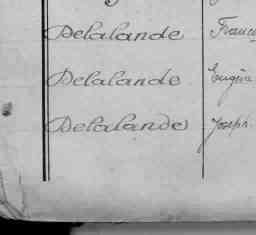 Delalande Franç
Delalande Eugène
Delalande Joseph